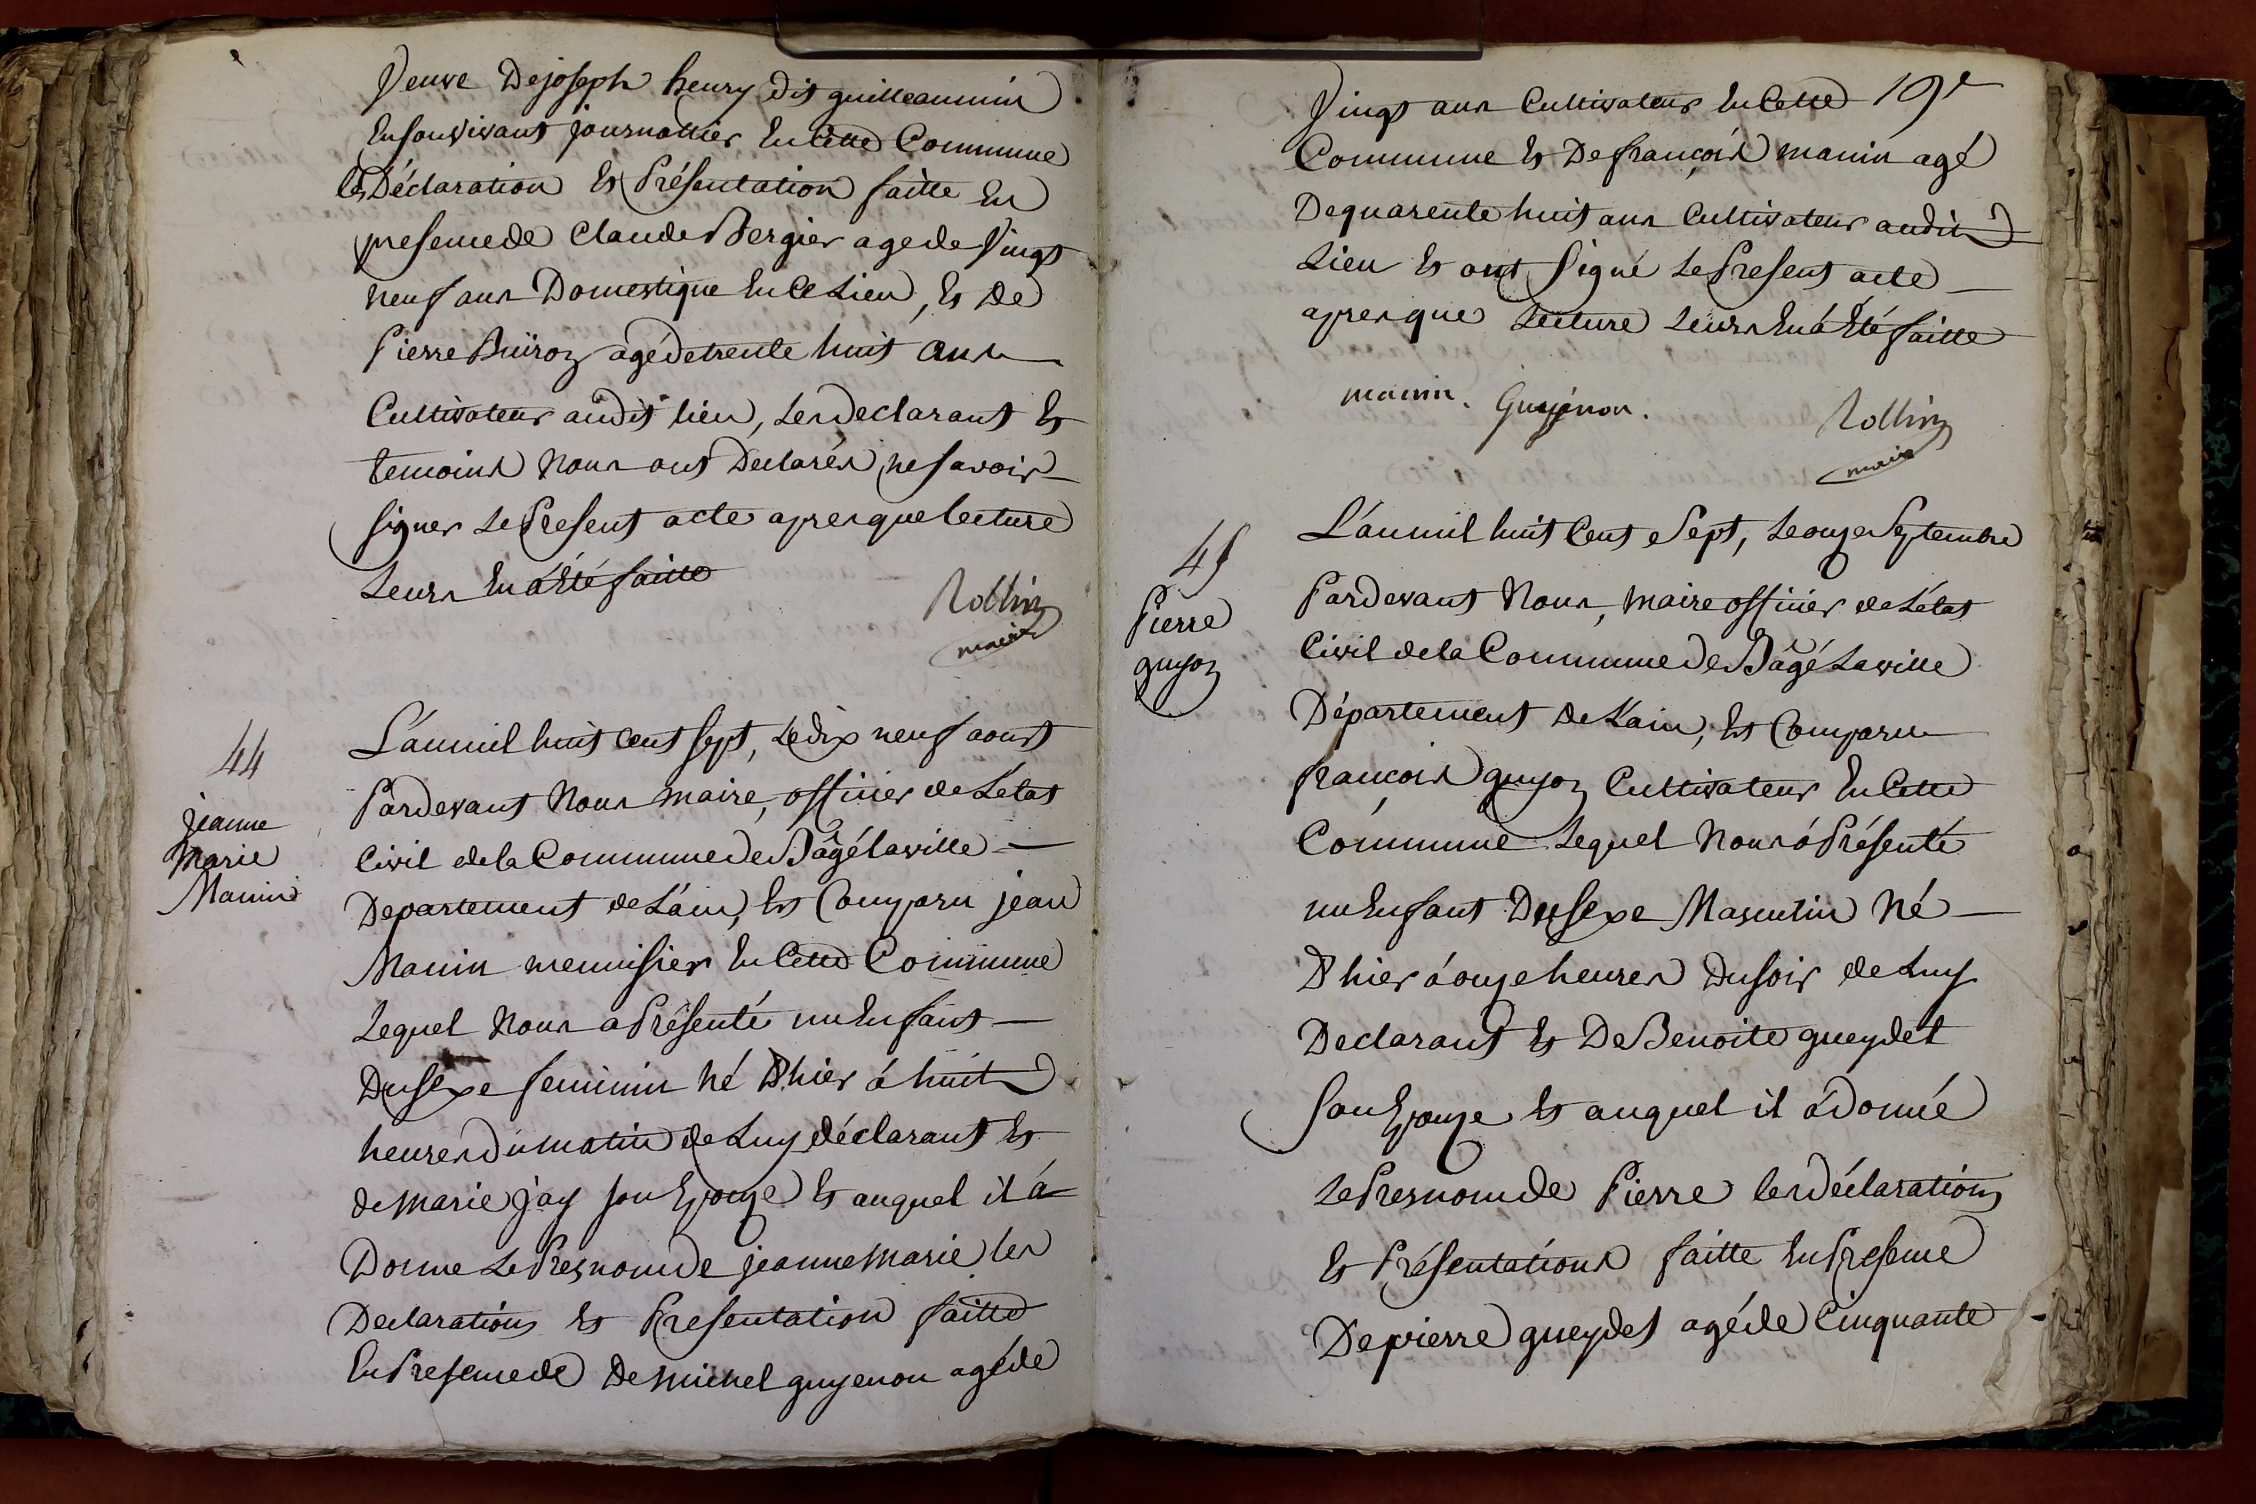 Veuve De joseph henry dit guilleaumin
En son Vivant journallier En Cette Commune
les Déclaration Et Présentation faitte En
presence de Claude Bergier age de Vingt
neuf ans Domestique En Ce Lieu, Et De
Pierre Buiron agé de trente huit ans
Cultivateur audit lieu, Les declarant Et
temoins Nous ont Declarés ne savoir
signer Le Present acte apres que lecture
Leurs En á Eté faitte
Rollin
maire
44
jeanne
Marie
Manin
L'an mil huit cent sept, Le dix neuf aoust
Pardevant Nous maire, officier de L'état
Civil de la Commune de Bâgé la ville
Departement de L'ain, Est Comparu jean
Manin menuisier En Cette Commune
Lequel Nous a Présenté un Enfant
Du sexe feminin Né D'hier á huit
heures du matin de Luy déclarant Et
de Marie jay son Epouze Et auquel il á
Donne Le Presnom de jeanne Marie les
Declarations Et Presentation faitte
En Presence de De Michel guyenon agé de
19e
Vingt ans Cultivateur En Cette
Commune Et De françois manin agé
De quarente huit ans Cultivateur audit
Lieu Et ont Signé Le Present acte
apres que Lecture Leurs En á Eté faitte
manin. Guyénon.
Rollin
maire
45
Pierre
guyon
L'an mil huit Cent Sept, Le onze Septembre
Pardevant Nous, maire officier de L'état
Civil de la Commune de Bâgé La ville
Département de L'ain, Est Comparu
françois guyon Cultivateur En Cette
Commune Lequel Nous á Présenté
un Enfant Du sexe Masculin Né
D'hier á onze heures Du soir de Luy
Declarant Et De Benoite gueydet
son Epouze Et auquel il á Donné
Le Presnom de Pierre les déclarations
Et Présentations faitte En Presence
De pierre gueydet agé de Cinquante